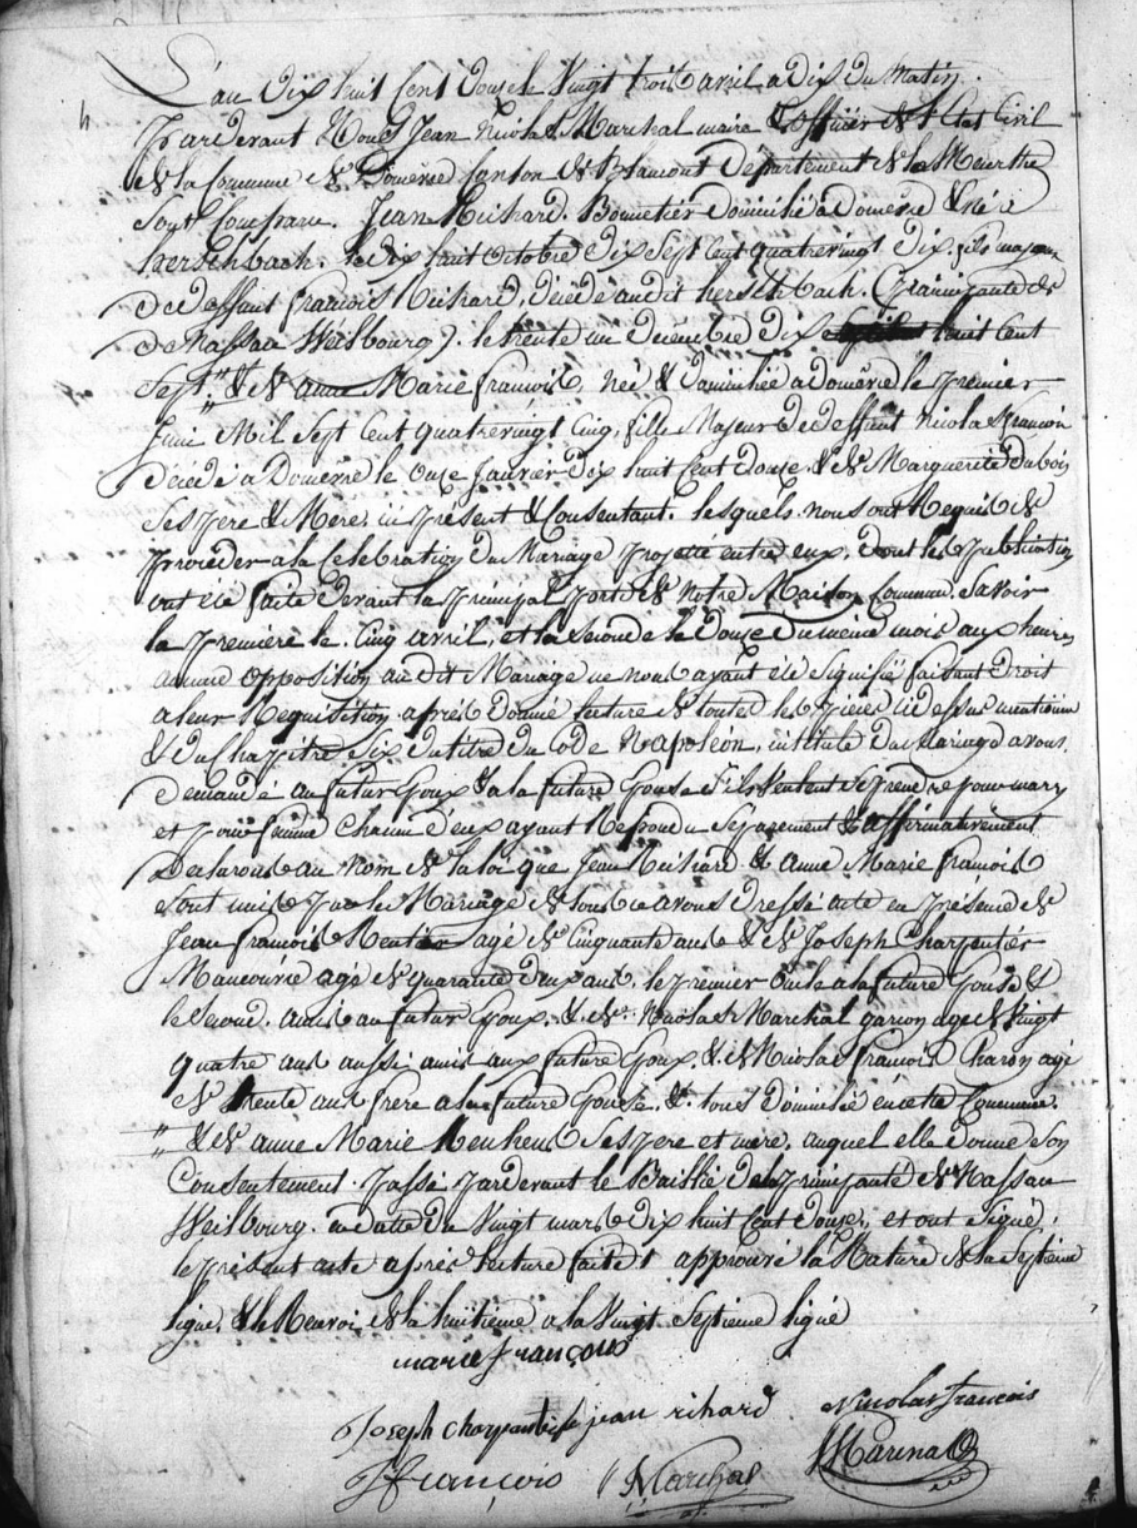 L'an Dix huit Cent Douze le Vingt trois avril a Dix du Matin.
Pardevant Nous Jean Nicolas Marchal maire & officier de l'Etat Civil
de la Commune de Domêvre Canton de Blamont Département de la Meurthe
Sont Comparu. Jean Richard. Bonnetier Domicilié a Domêvre & né a
herschbach. le Dix huit Octobre Dix Sept Cent quatrevingt Dix. fils majeur
de deffunt francois Richard, décédé audit herschbach. (Principauté de
de Nassau Weilbourg). le trente un Decembre Dix huit Cent
Sept. " & de anne Marie francois, née & Domiciliée a Domêvre le premier
Juin Mil Sept Cent quatrevingt Cinq, fille Majeur de deffunt Nicolas francois
Décédé a Domêvre le Onze Janvier Dix huit Cent Douze. & de Marguerite Dubois
Ses pere & Mere. ici présent & Consentant. lesquels nous ont Requis de
proceder a la Celebration du Mariage projetté entre eux. Dont les publication
ont été faite Devant la principal porte de Notre Maison Commune. Savoir
la premiere le. Cinq avril, et la Seconde le Douze du meme mois aux heures
aucune opposition au dit Mariage ne nous ayant été Signifié faisant Droit
a leur Requisition. aprés Donné lecture de toutes les pieces ci dessus mentionné
& du Chapitre Six du titre du Code Napoléon, intitulé du Mariage avons.
Demandé au futur Epoux & a la future Epouse s'ils Veulent Se prendre pour mary
et pour femme Chacun d'eux ayant Repondu Séparement & affirmativement
Declarons au Nom de la loi que Jean Richard & anne Marie francois
Sont unis par le Mariage de tous ce avons Dressé acte en présence de
Jean francois Rentier agé de Cinquante ans & de Joseph Charpentier
Manouvrie agé de quarante deux ans. le premier oncle a la future Epouse &
le Second. amis au futur Epoux. & de. Nicolas Marchal garcon agé de Vingt
quatre ans aussi amis aux future Epoux. & de Nicolas francois Charon agé
de trente ans frere a la future Epouse. &. tous Domicilié en cette Commune.
" & de anne Marie Ses pere et mere. auquel elle Donne Son
Consentement. passé pardevant le Baillié de la principauté de Nassau
Weilbourg. en datte du Vingt mars Dix huit Cent Douze, et ont Signé,
le présent acte aprés lecture faite approuvé la Rature de la Septieme
ligne, & le Renvoi de la huitieme a la Vingt Septieme ligne
marie françois
Joseph charpentier jean richard Nicolas francois
J françois Marchal Marchal